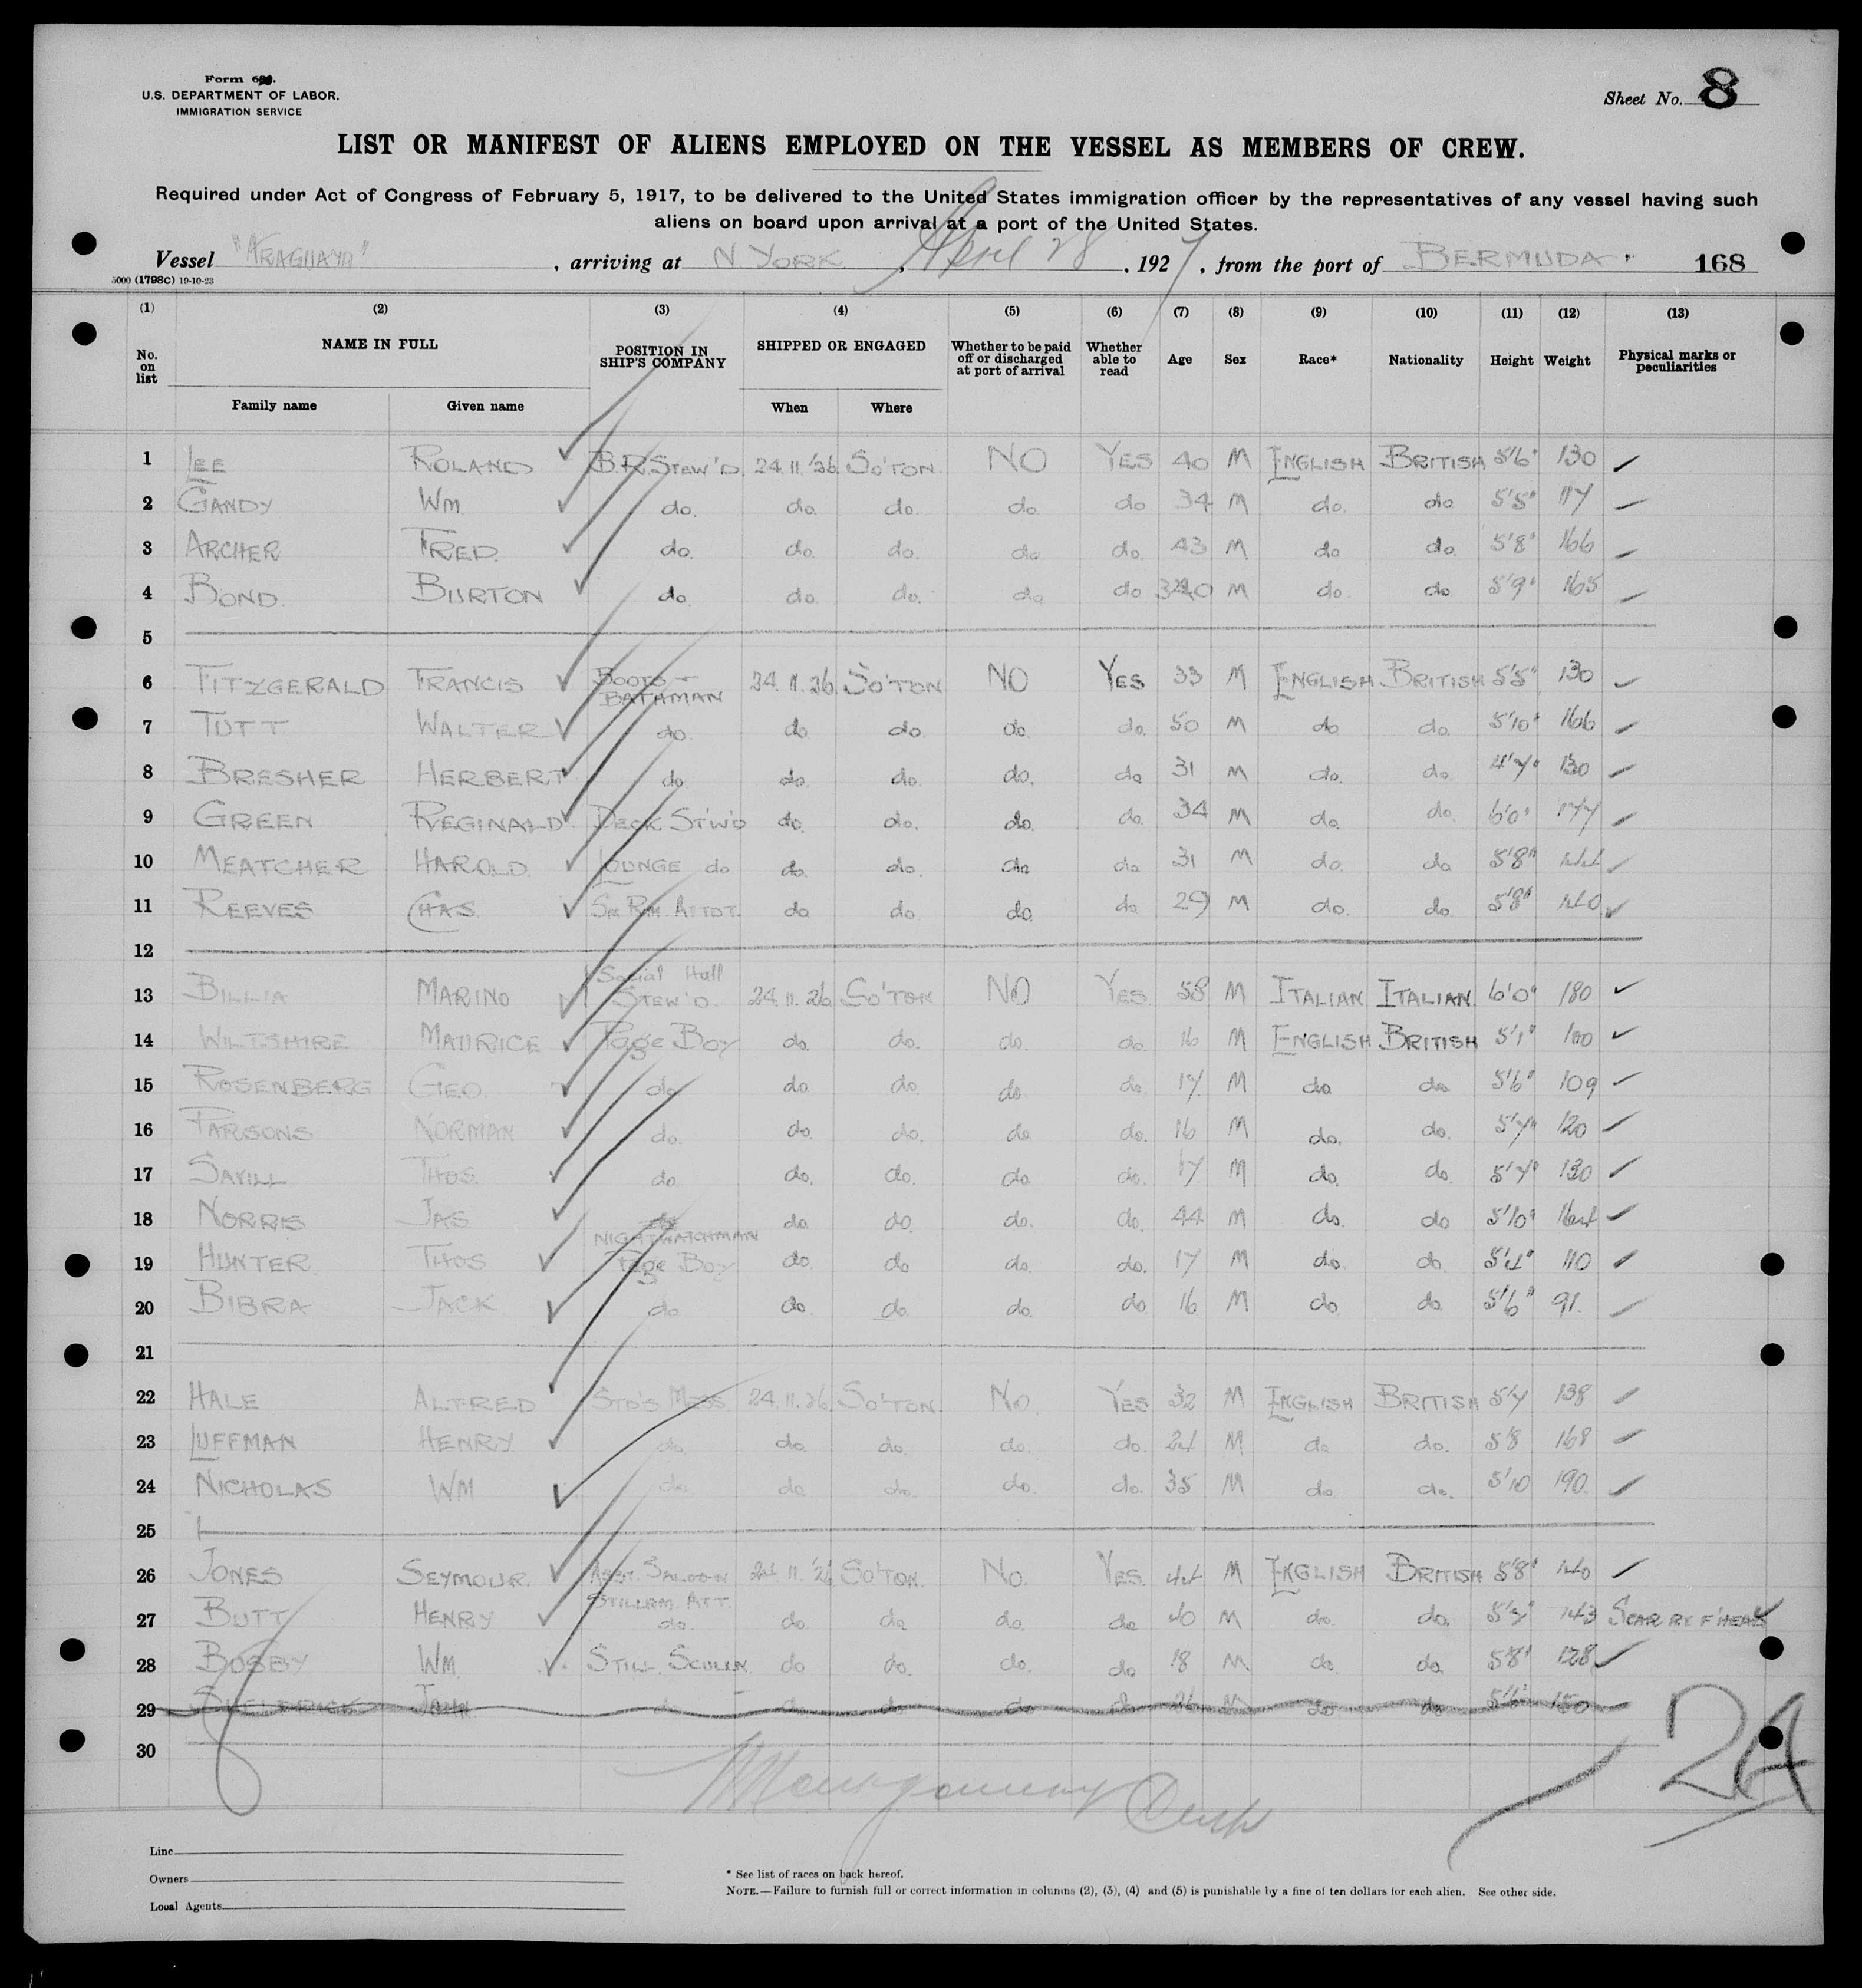 Form 689.
U.S. DEPARTMENT OF LABOR.
IMMIGRATION SERVICE
Sheet No. 8
LIST OR MANIFEST OF ALIENS EMPLOYED ON THE VESSEL AS MEMBERS OF CREW.
Required under Act of Congress of February 5, 1917, to be delivered to the United States immigration officer by the representatives of any vessel having such
aliens on board upon arrival at a port of the United States.
Vessel "ARAGUAYA", arriving at N YORK, April 28, 1927, from the port of BERMUDA. 168
5000 (1798C) 19-10-23
(1) (2) (3) (4) (5) (6) (7) (8) (9) (10) (11) (12) (13)
No. on list NAME IN FULL POSITION IN SHIP'S COMPANY SHIPPED OR ENGAGED Whether to be paid off or discharged at port of arrival Whether able to read Age Sex Race* Nationality Height Weight Physical marks or peculiarities
Family name Given name When Where
1 LEE ROLAND B.R. STEW'D 24.11.'26 SO'TON. NO YES 40 M ENGLISH BRITISH 5'6" 130
2 GANDY WM do. do. do. do. do 34 M do. do 5'5" 117
3 ARCHER FRED. do. do. do. do. do. 43 M do do. 5'8" 166
4 BOND. BURTON do. do. do. do do 40 M do do 5'9" 165
5
6 FITZGERALD FRANCIS BOOTS + BATHMAN 24.11.26 SO'TON NO YES 33 M ENGLISH BRITISH 5'5" 130
7 TUTT WALTER do. do. do. do. do. 50 M do do. 5'10" 166
8 BRESHER HERBERT do do. do. do. do 31 M do. do. 4'7" 130
9 GREEN REGINALD DECK ST'W'D do. do. do. do. 34 M do. do. 6'0" 177
10 MEATCHER HAROLD. LOUNGE do do. do. do do 31 M do. do 5'8" 144
11 REEVES CHAS SM. RM. ATTDT. do do. do. do 29 M do. do. 5'8" 140
12
13 BILLIA MARINO Social Hall STEW'D. 24.11.26 SO'TON NO YES. 58 M ITALIAN ITALIAN. 6'0" 180
14 WILTSHIRE MAURICE Page Boy do. do. do. do. 16 M ENGLISH BRITISH 5'1" 100
15 ROSENBERG GEO. do do. do. do do 17 M do do 5'6" 109
16 PARSONS NORMAN do. do. do. do do. 16 M do. do. 5'7" 120
17 SAVILL THOS. do. do. do. do. do. 17 M do. do. 5'7" 130
18 NORRIS JAS NIGHTWATCHMAN do do. do. do. 44 M do. do 5'10" 164
19 HUNTER THOS Page Boy do. do do. do. 17 M do. do. 5'4" 110
20 BIBRA JACK do do. do. do. do. 16 M do do 5'6" 91.
21
22 HALE ALFRED STD'S MESS. 24.11.26 SO'TON. No. YES 32 M ENGLISH BRITISH 5'7 138
23 LUFFMAN HENRY do. do. do. do. do. 24 M do do. 5'8 168
24 NICHOLAS WM do. do do. do. do. 35 M do do. 5'10 190.
25
26 JONES SEYMOUR. ASST. SALOON 24.11.'26 SO'TON. No. YES. 44 M ENGLISH BRITISH 5'8" 140
27 BUTT HENRY STILLRM. ATT. do. do. do do. do 40 M do. do. 143 SCAR RT F'HEAD
28 BUSBY WM. STILL SCULLN. do do. do. do 18 M do. do. 5'8" 128
29 SHELDRICK do do do do do 26 M do do 5'6" 150
30
Montgomery
2A
Line
Owners
Local Agents
* See list of races on back hereof.
NOTE.—Failure to furnish full or correct information in columns (2), (3), (4) and (5) is punishable by a fine of ten dollars for each alien. See other side.